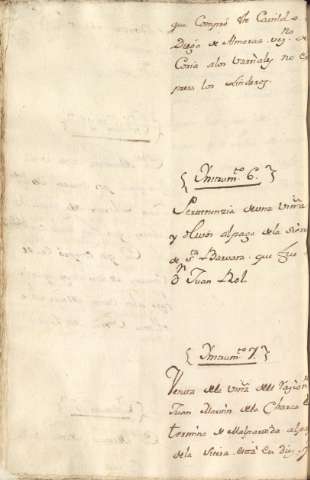 que Compró De Cavildo
Diego de Almaraz vez.no de
Coria a los varriales no ex
presa los Linderos.
{ Ynstrum.to 6. }
Pertenenzia de una viña
y olivar al pago de la
de S.ta Barvara que fue
de D.n Juan Rol.
{ Ynstrum.to 7. }
Venta de la viña de la
Juan Martin de la Charca
termino de Malpartida al pa
de la Sierra esta en diez